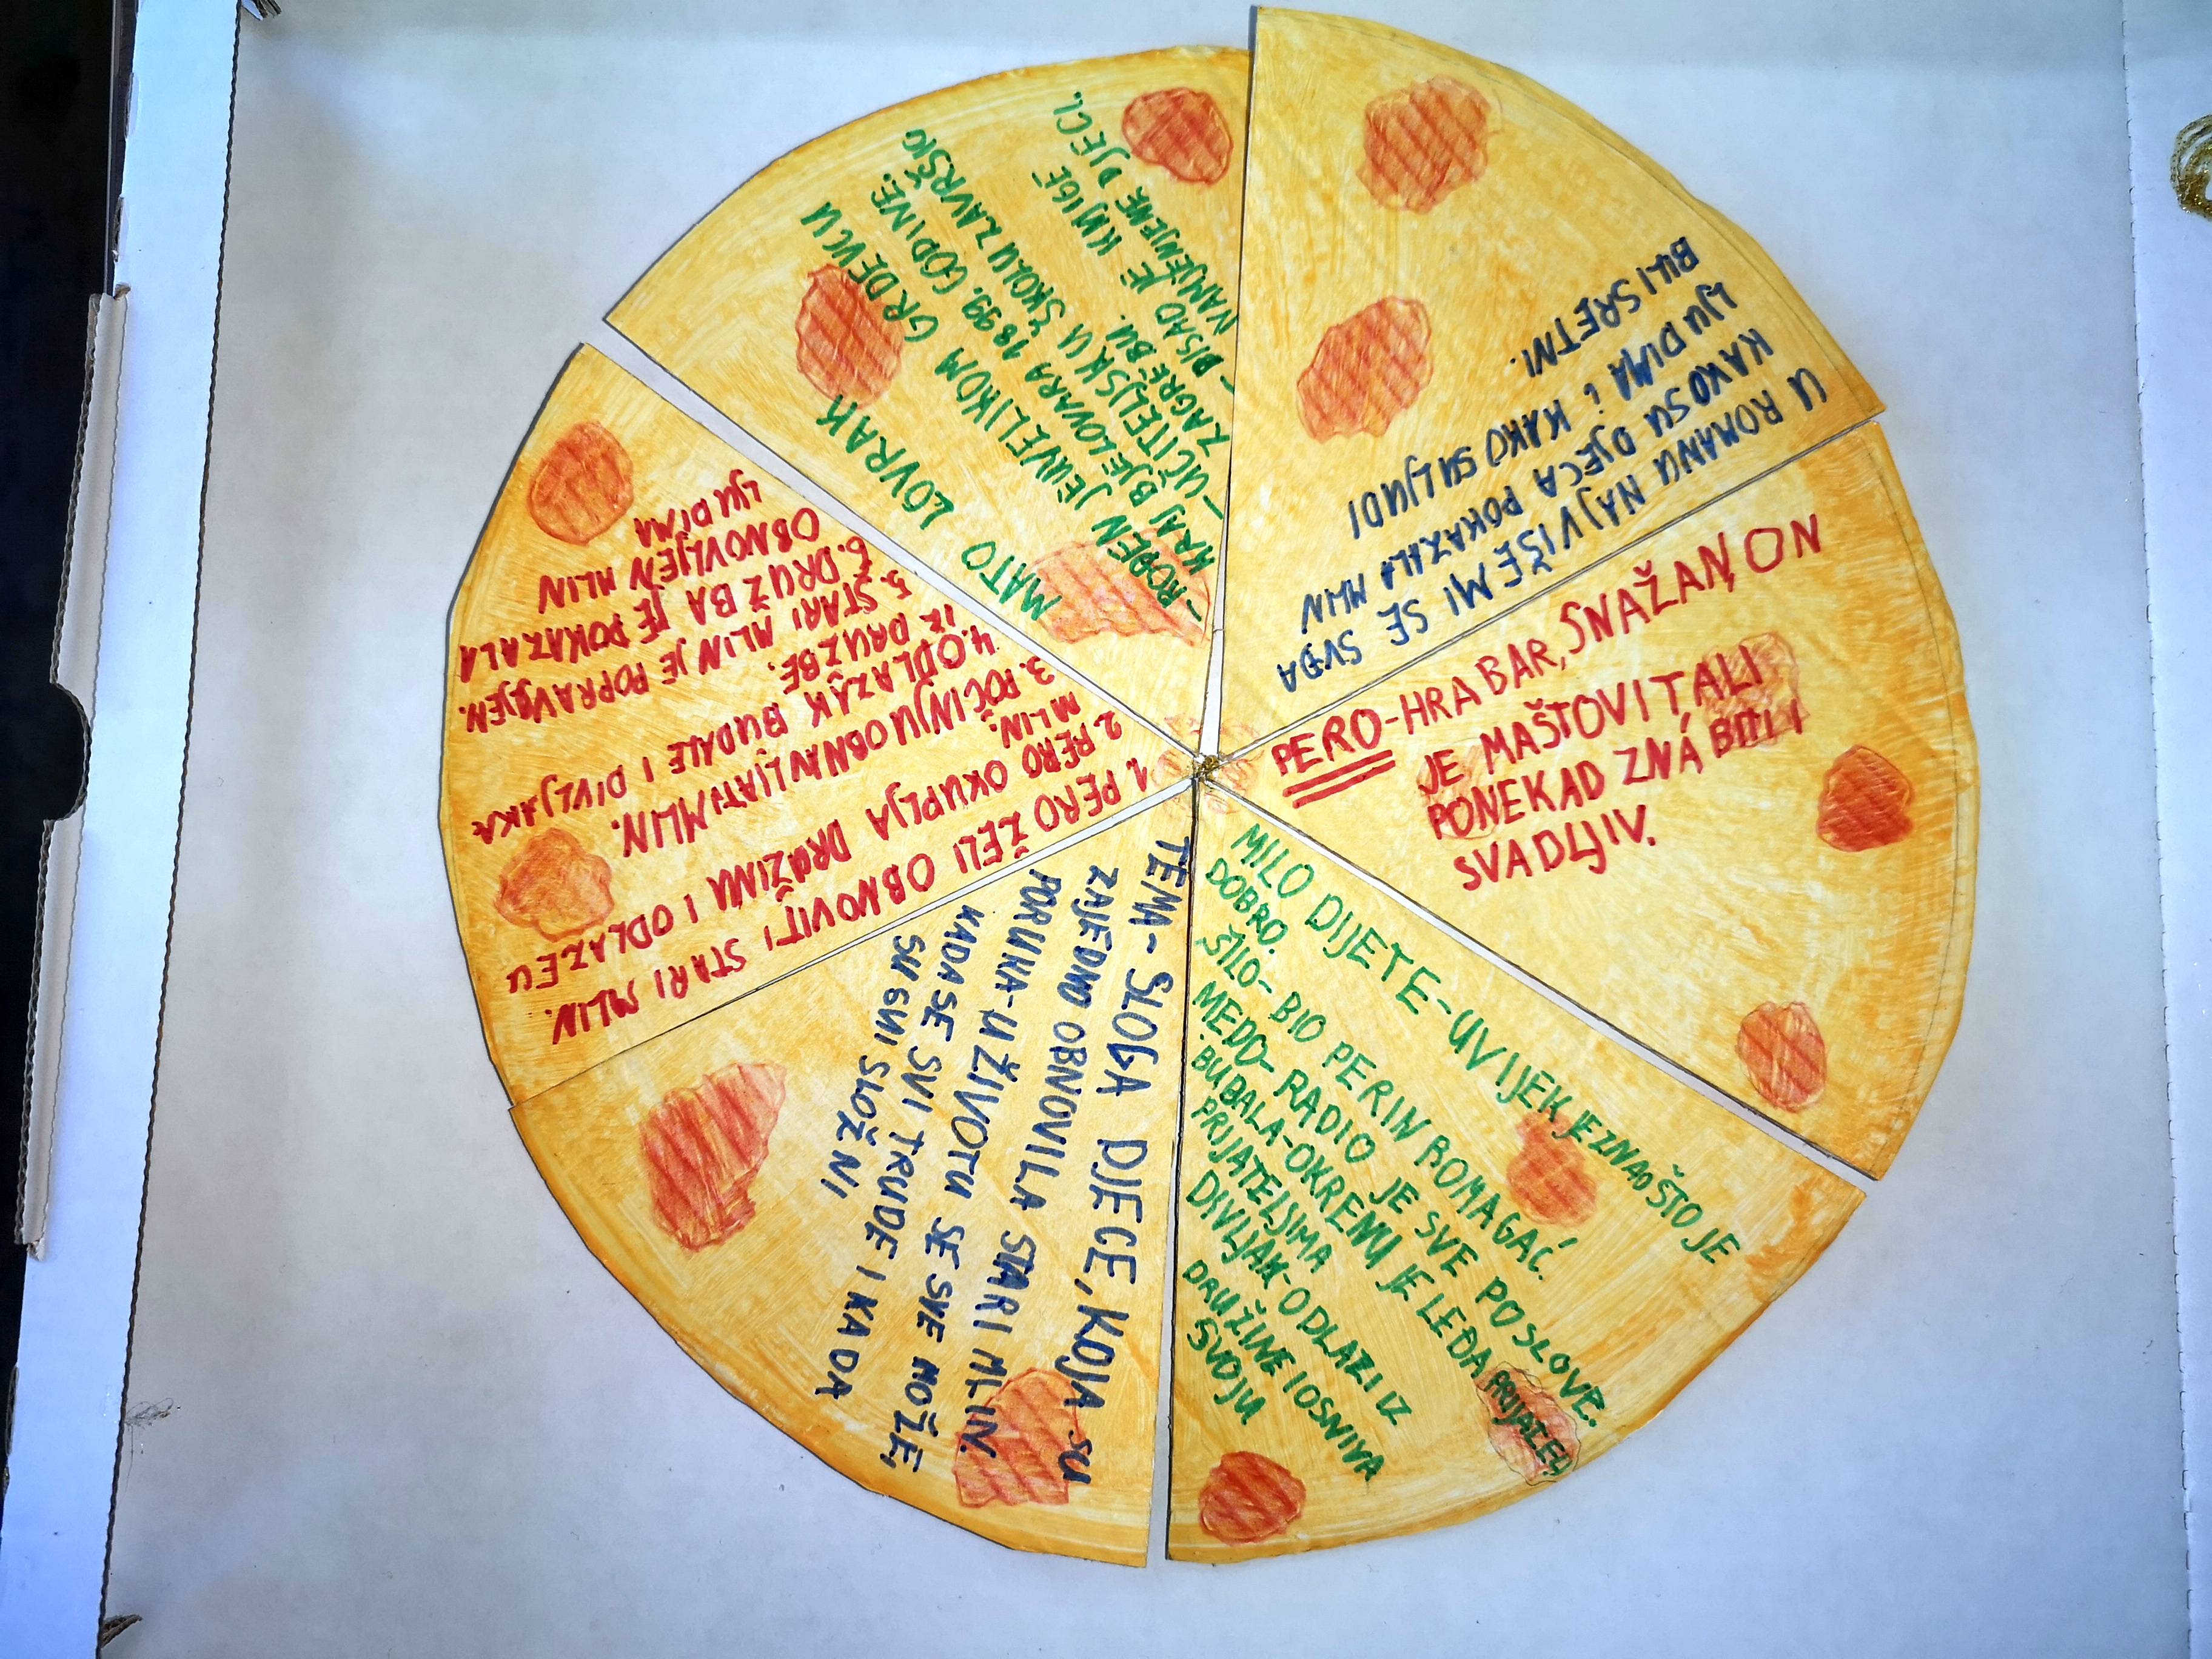 MATO LOVRAK
- ROĐEN JE U VELIKOM GRĐEVCU
KRAJ BJELOVARA 1899. GODINE.
- UČITELJSKU ŠKOLU ZAVRŠIO
ZAGREBU.
- PISAO JE KNJIGE
NAMJENJENE DJECI.
U ROMANU NAJVIŠE MI SE SVĐA
KAKO SU DJECA POKAZALA MLIN
LJUDIMA i KAKO SU LJUDI
BILI SRETNI.
PERO - HRABAR, SNAŽAN, ON
JE MAŠTOVIT ALI
PONEKAD ZNA BITI I
SVADLJIV.
MILO DIJETE - UVIJEK JE ZNAO ŠTO JE
DOBRO.
ŠILO - BIO PERIN POMAGAĆ.
MEDO - RADIO JE SVE POSLOVE.
BUBALA - OKRENU JE LEĐA PRIJATELJ
PRIJATELJIMA
DIVLJAK - ODLAZI IZ
DRUŽINE I OSNIVA
SVOJU
TEMA - SLOGA DJECE, KOJA SU
ZAJEDNO OBNOVILA STARI MLIN.
PORUKA - U ŽIVOTU SE SVE MOŽE,
KADA SE SVI TRUDE I KADA
SU SVI SLOŽNI
1. PERO ŽELI OBNOVITI STARI MLIN.
2. PERO OKUPLJA DRUŽINU I ODLAZE U
MLIN.
3. POČINJU OBNAVLJATI MLIN.
4. ODLAZAK BUDALE I DIVLJAKA
IZ DRUŽBE.
5. STARI MLIN JE POPRAVLJEN.
6. DRUŽBA JE POKAZALA
OBNOVLJEN MLIN
LJUDIMA